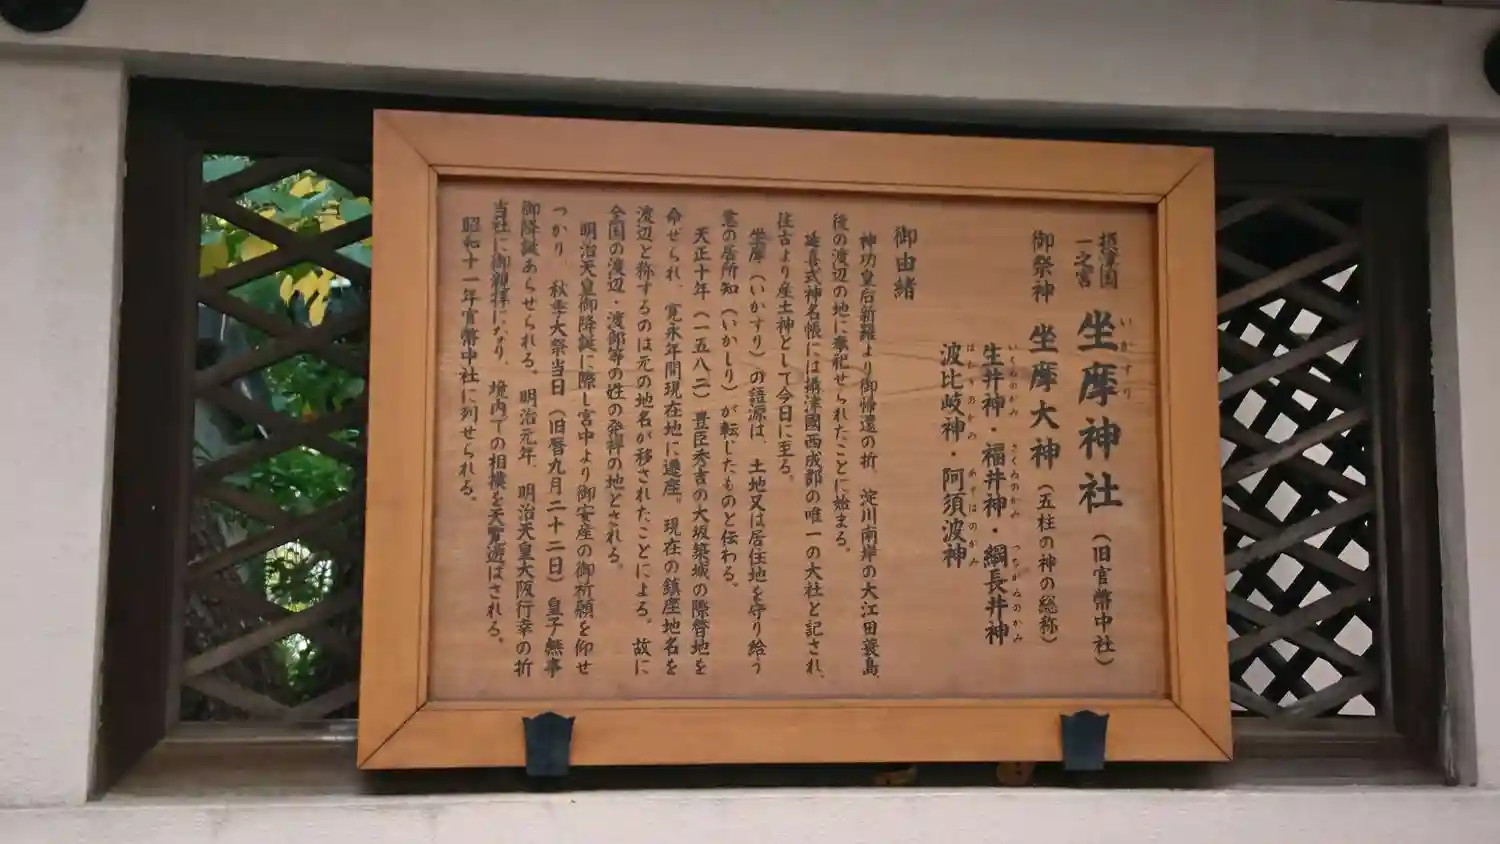 摂津国
一之宮
坐摩神社（旧官幣中社）
いかすり
御祭神　坐摩大神（五柱の神の総称）
生井神・福井神・綱長井神
いくゐのかみ　さくゐのかみ　つながゐのかみ
波比岐神・阿須波神
はひきのかみ　あすはのかみ
御由緒
神功皇后新羅より御帰還の折、淀川南岸の大江田蓑島、
後の渡辺の地に奉祀せられたことに始まる。
延喜式神名帳には攝津國西成郡の唯一の大社と記され、
往古より産土神として今日に至る。
坐摩（いかすり）の語源は、土地又は居住地を守り給う
意の居所知（いかしり）が転じたものと伝わる。
天正十年（一五八二）豊臣秀吉の大坂築城の際替地を
命せられ、寛永年間現在地に遷座。現在の鎮座地名を
渡辺と称するのは元の地名が移されたことによる。故に
全国の渡辺・渡部等の姓の発祥の地とされる。
明治天皇御降誕に際し宮中より御安産の御祈願を仰せ
つかり、秋季大祭当日（旧暦九月二十二日）皇子無事
御降誕あらせられる。明治元年、明治天皇大阪行幸の折
当社に御親拝になり、境内での相撲を天覧遊ばされる。
昭和十一年官幣中社に列せられる。